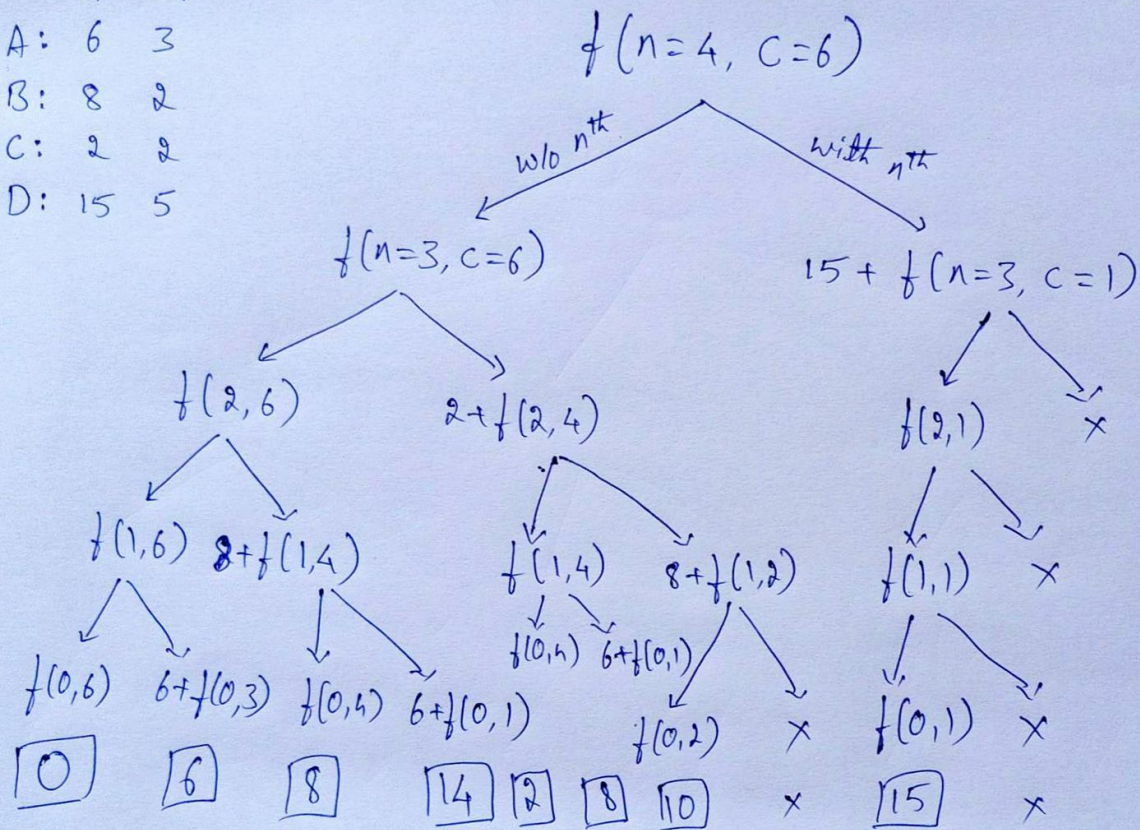 A: 6 3
B: 8 2
C: 2 2
D: 15 5
f(n=4, C=6)
w/o nth
with nth
f(n=3, C=6)
15 + f(n=3, C=1)
f(2,6)
2+f(2,4)
f(2,1)
x
f(1,6)
8+f(1,4)
f(1,4)
8+f(1,2)
f(1,1)
x
f(0,4)
6+f(0,1)
f(0,6)
6+f(0,3)
f(0,4)
6+f(0,1)
f(0,2)
x
f(0,1)
x
0 6 8 14 2 8 10 x 15 x